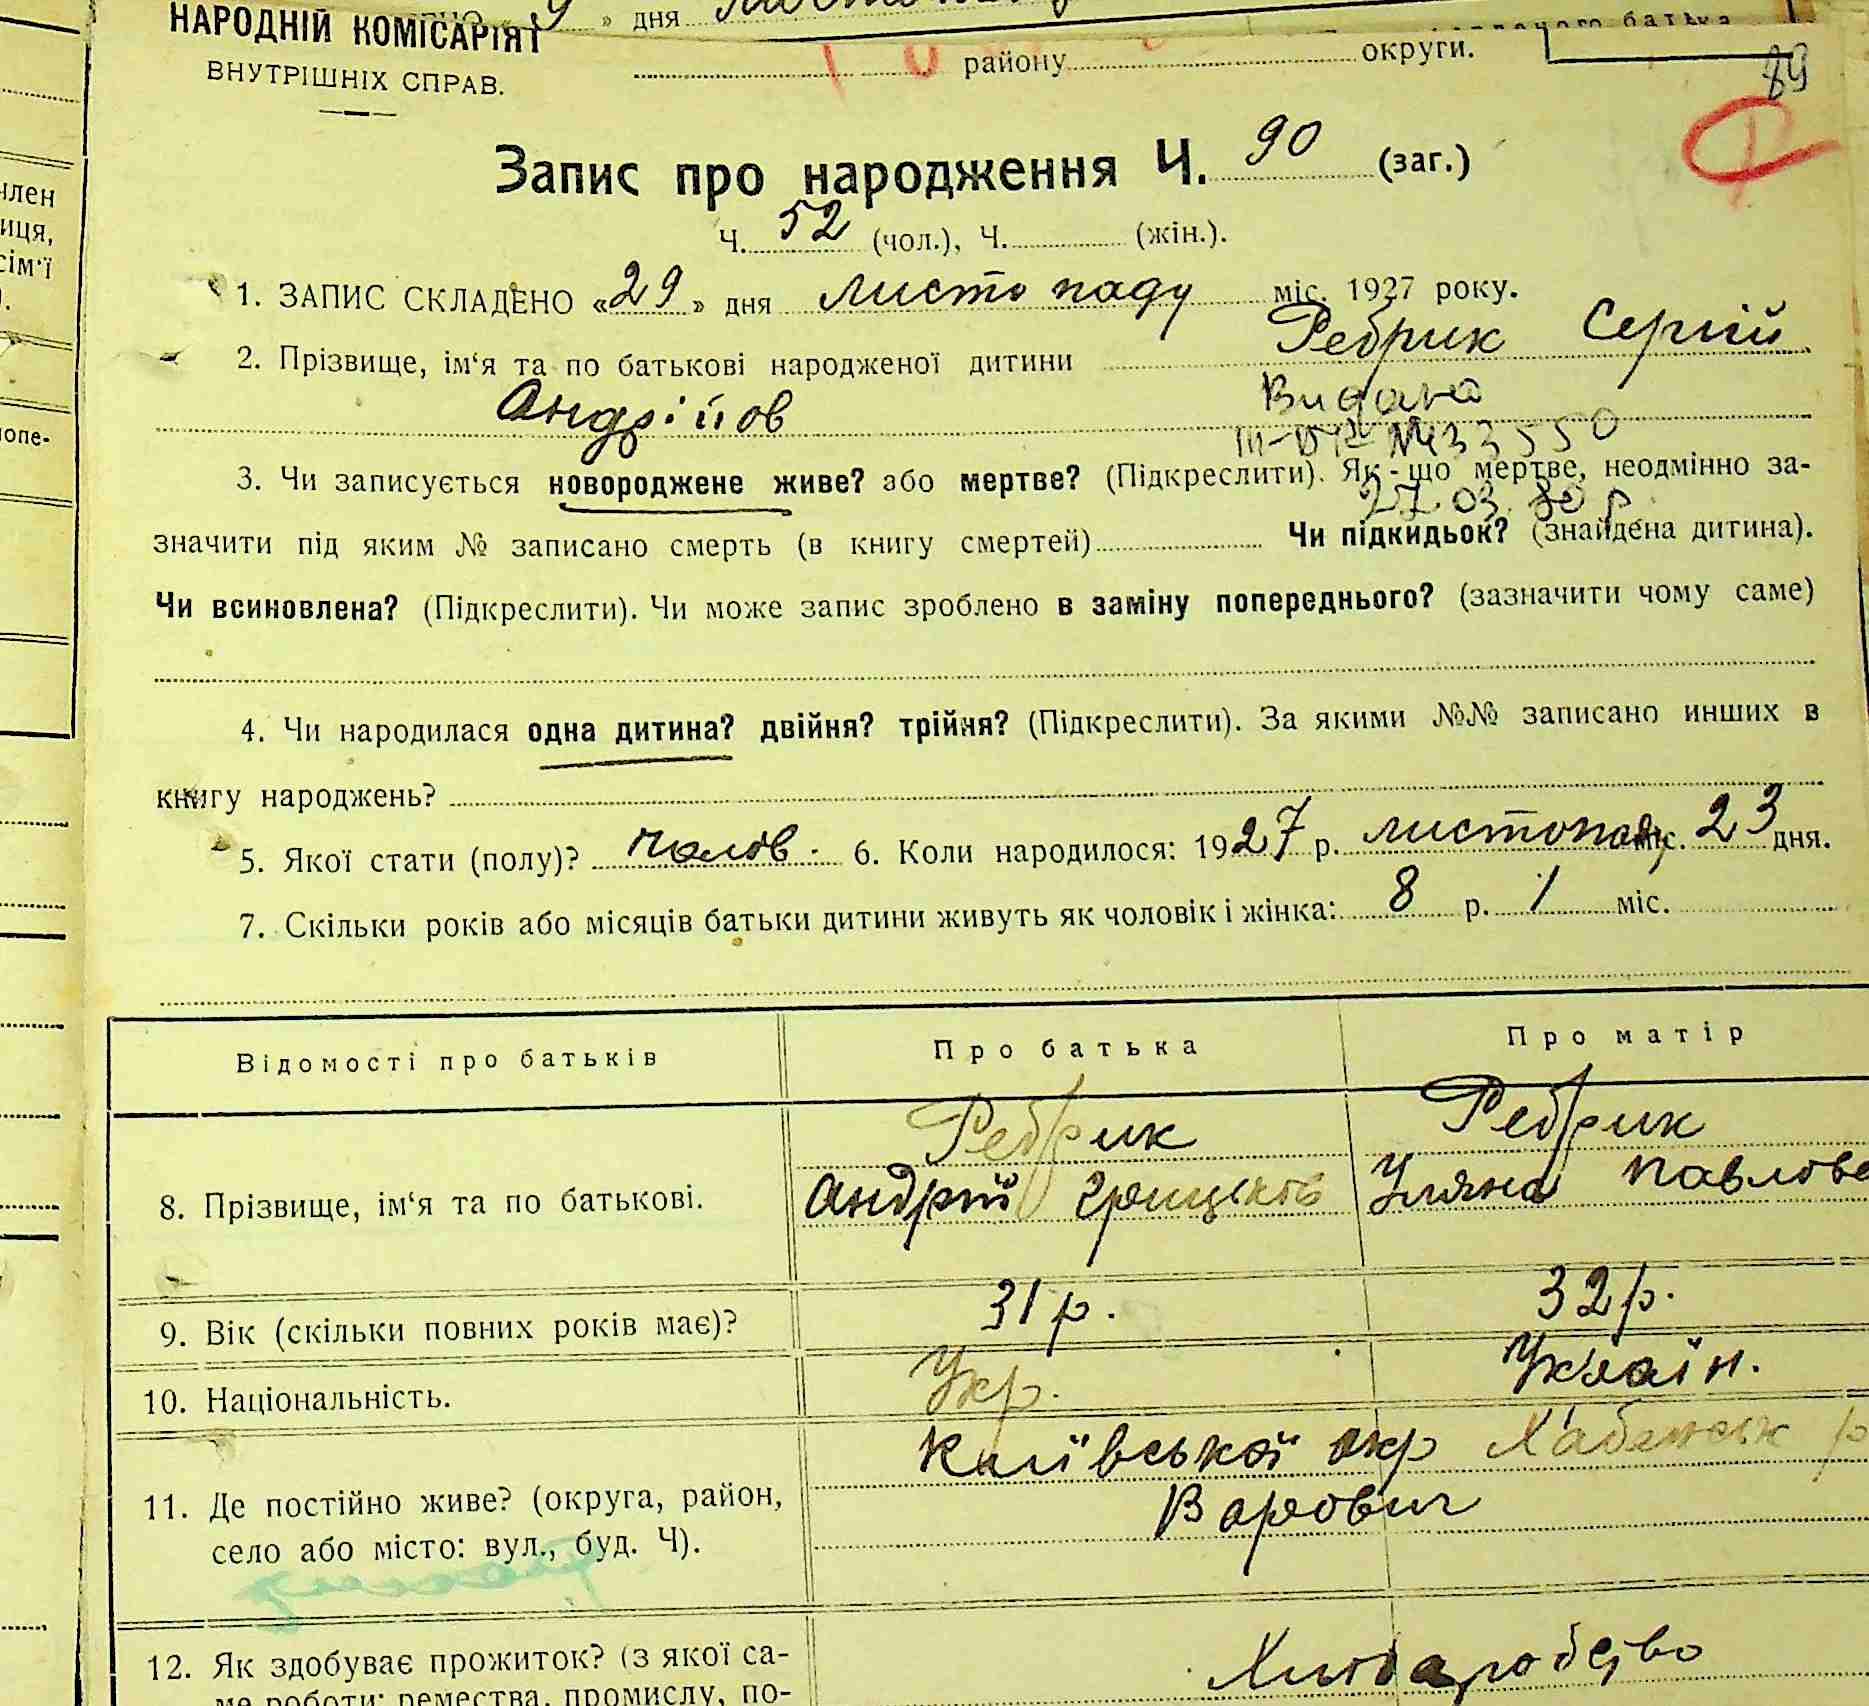 « 9 » дня
НАРОДНІЙ КОМІСАРІЯТ
ВНУТРІШНІХ СПРАВ.
району округи.
89
Запис про народження Ч. 90 (заг.)
Ч. 52 (чол.), Ч. (жін.).
1. ЗАПИС СКЛАДЕНО «29» дня листопаду міс. 1927 року.
2. Прізвище, ім‘я та по батькові народженої дитини Ребрик Сергій
Андрійов Видано
III-БК №433550
3. Чи записується новороджене живе? або мертве? (Підкреслити). Як-що мертве, неодмінно за-
27.03.80 р
значити під яким № записано смерть (в книгу смертей) Чи підкидьок? (знайдена дитина).
Чи всиновлена? (Підкреслити). Чи може запис зроблено в заміну попереднього? (зазначити чому саме)
4. Чи народилася одна дитина? двійня? трійня? (Підкреслити). За якими №№ записано инших в
книгу народжень?
5. Якої стати (полу)? чолов. 6. Коли народилося: 1927 р. листопаду міс. 23 дня.
7. Скільки років або місяців батьки дитини живуть як чоловік і жінка: 8 р. 1 міс.
Відомості про батьків Про батька Про матір
Ребрик Ребрик
8. Прізвище, ім‘я та по батькові. Андрій Грицьків Уляна Павлов
9. Вік (скільки повних років має)? 31 р. 32 р.
10. Національність. Укр. Україн.
Київської окр Хабенськ р
11. Де постійно живе? (округа, район, Варович
село або місто: вул., буд. Ч).
12. Як здобуває прожиток? (з якої са- Хлібаробство
ме роботи: ремества, промислу, по-
член
иця,
сім‘ї
опе-